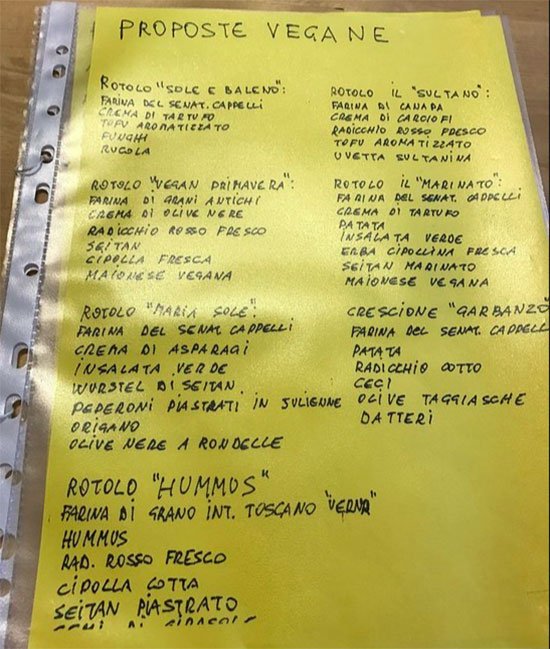 PROPOSTE VEGANE
ROTOLO "SOLE E BALENO":
FARINA DEL SENAT. CAPPELLI
CREMA DI TARTUFO
TOFU AROMATIZZATO
FUNGHI
RUCOLA
ROTOLO IL "SULTANO":
FARINA DI CANAPA
CREMA DI CARCIOFI
RADICCHIO ROSSO FRESCO
TOFU AROMATIZZATO
UVETTA SULTANINA
ROTOLO "VEGAN PRIMAVERA":
FARINA DI GRANI ANTICHI
CREMA DI OLIVE NERE
RADICCHIO ROSSO FRESCO
SEITAN
CIPOLLA FRESCA
MAIONESE VEGANA
ROTOLO IL "MARINATO":
FARINA DEL SENAT. CAPPELLI
CREMA DI TARTUFO
PATATA
INSALATA VERDE
ERBA CIPOLLINA FRESCA
SEITAN MARINATO
MAIONESE VEGANA
ROTOLO "MARIA SOLE":
FARINA DEL SENAT. CAPPELLI
CREMA DI ASPARAGI
INSALATA VERDE
WURSTEL DI SEITAN
PEPERONI PIASTRATI IN JULIENNE
ORIGANO
OLIVE NERE A RONDELLE
CRESCIONE "GARBANZO
FARINA DEL SENAT. CAPPELL
PATATA
RADICCHIO COTTO
CECI
OLIVE TAGGIASCHE
DATTERI
ROTOLO "HUMMUS"
FARINA DI GRANO INT. TOSCANO "VERNA"
HUMMUS
RAD. ROSSO FRESCO
CIPOLLA COTTA
SEITAN PIASTRATO
SEMI DI GIRASOLE